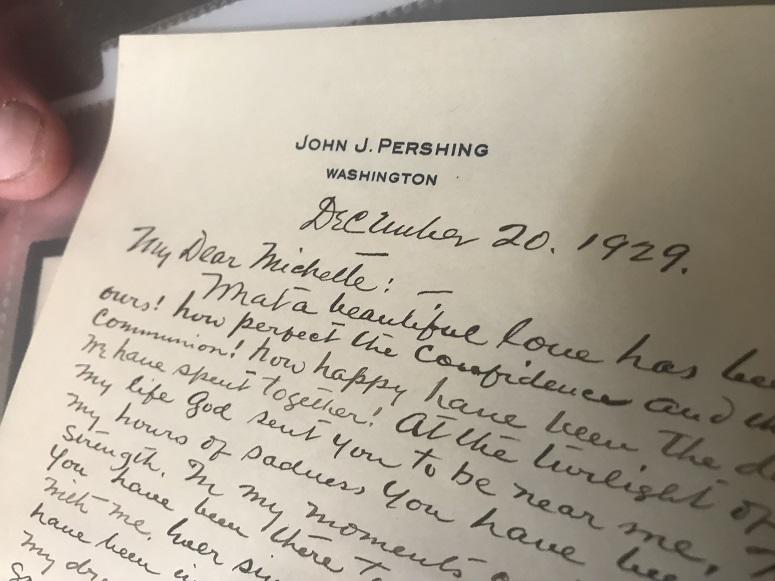 JOHN J. PERSHING
WASHINGTON
December 20. 1929.
My Dear Michelle:—
What a beautiful love has
ours! how perfect the confidence and
communion! how happy have been the
We have spent together! At the twilight of
my life God sent you to be near me,
my hours of sadness you have
strength. In my moments
you have been there
with me. Ever
have been
my